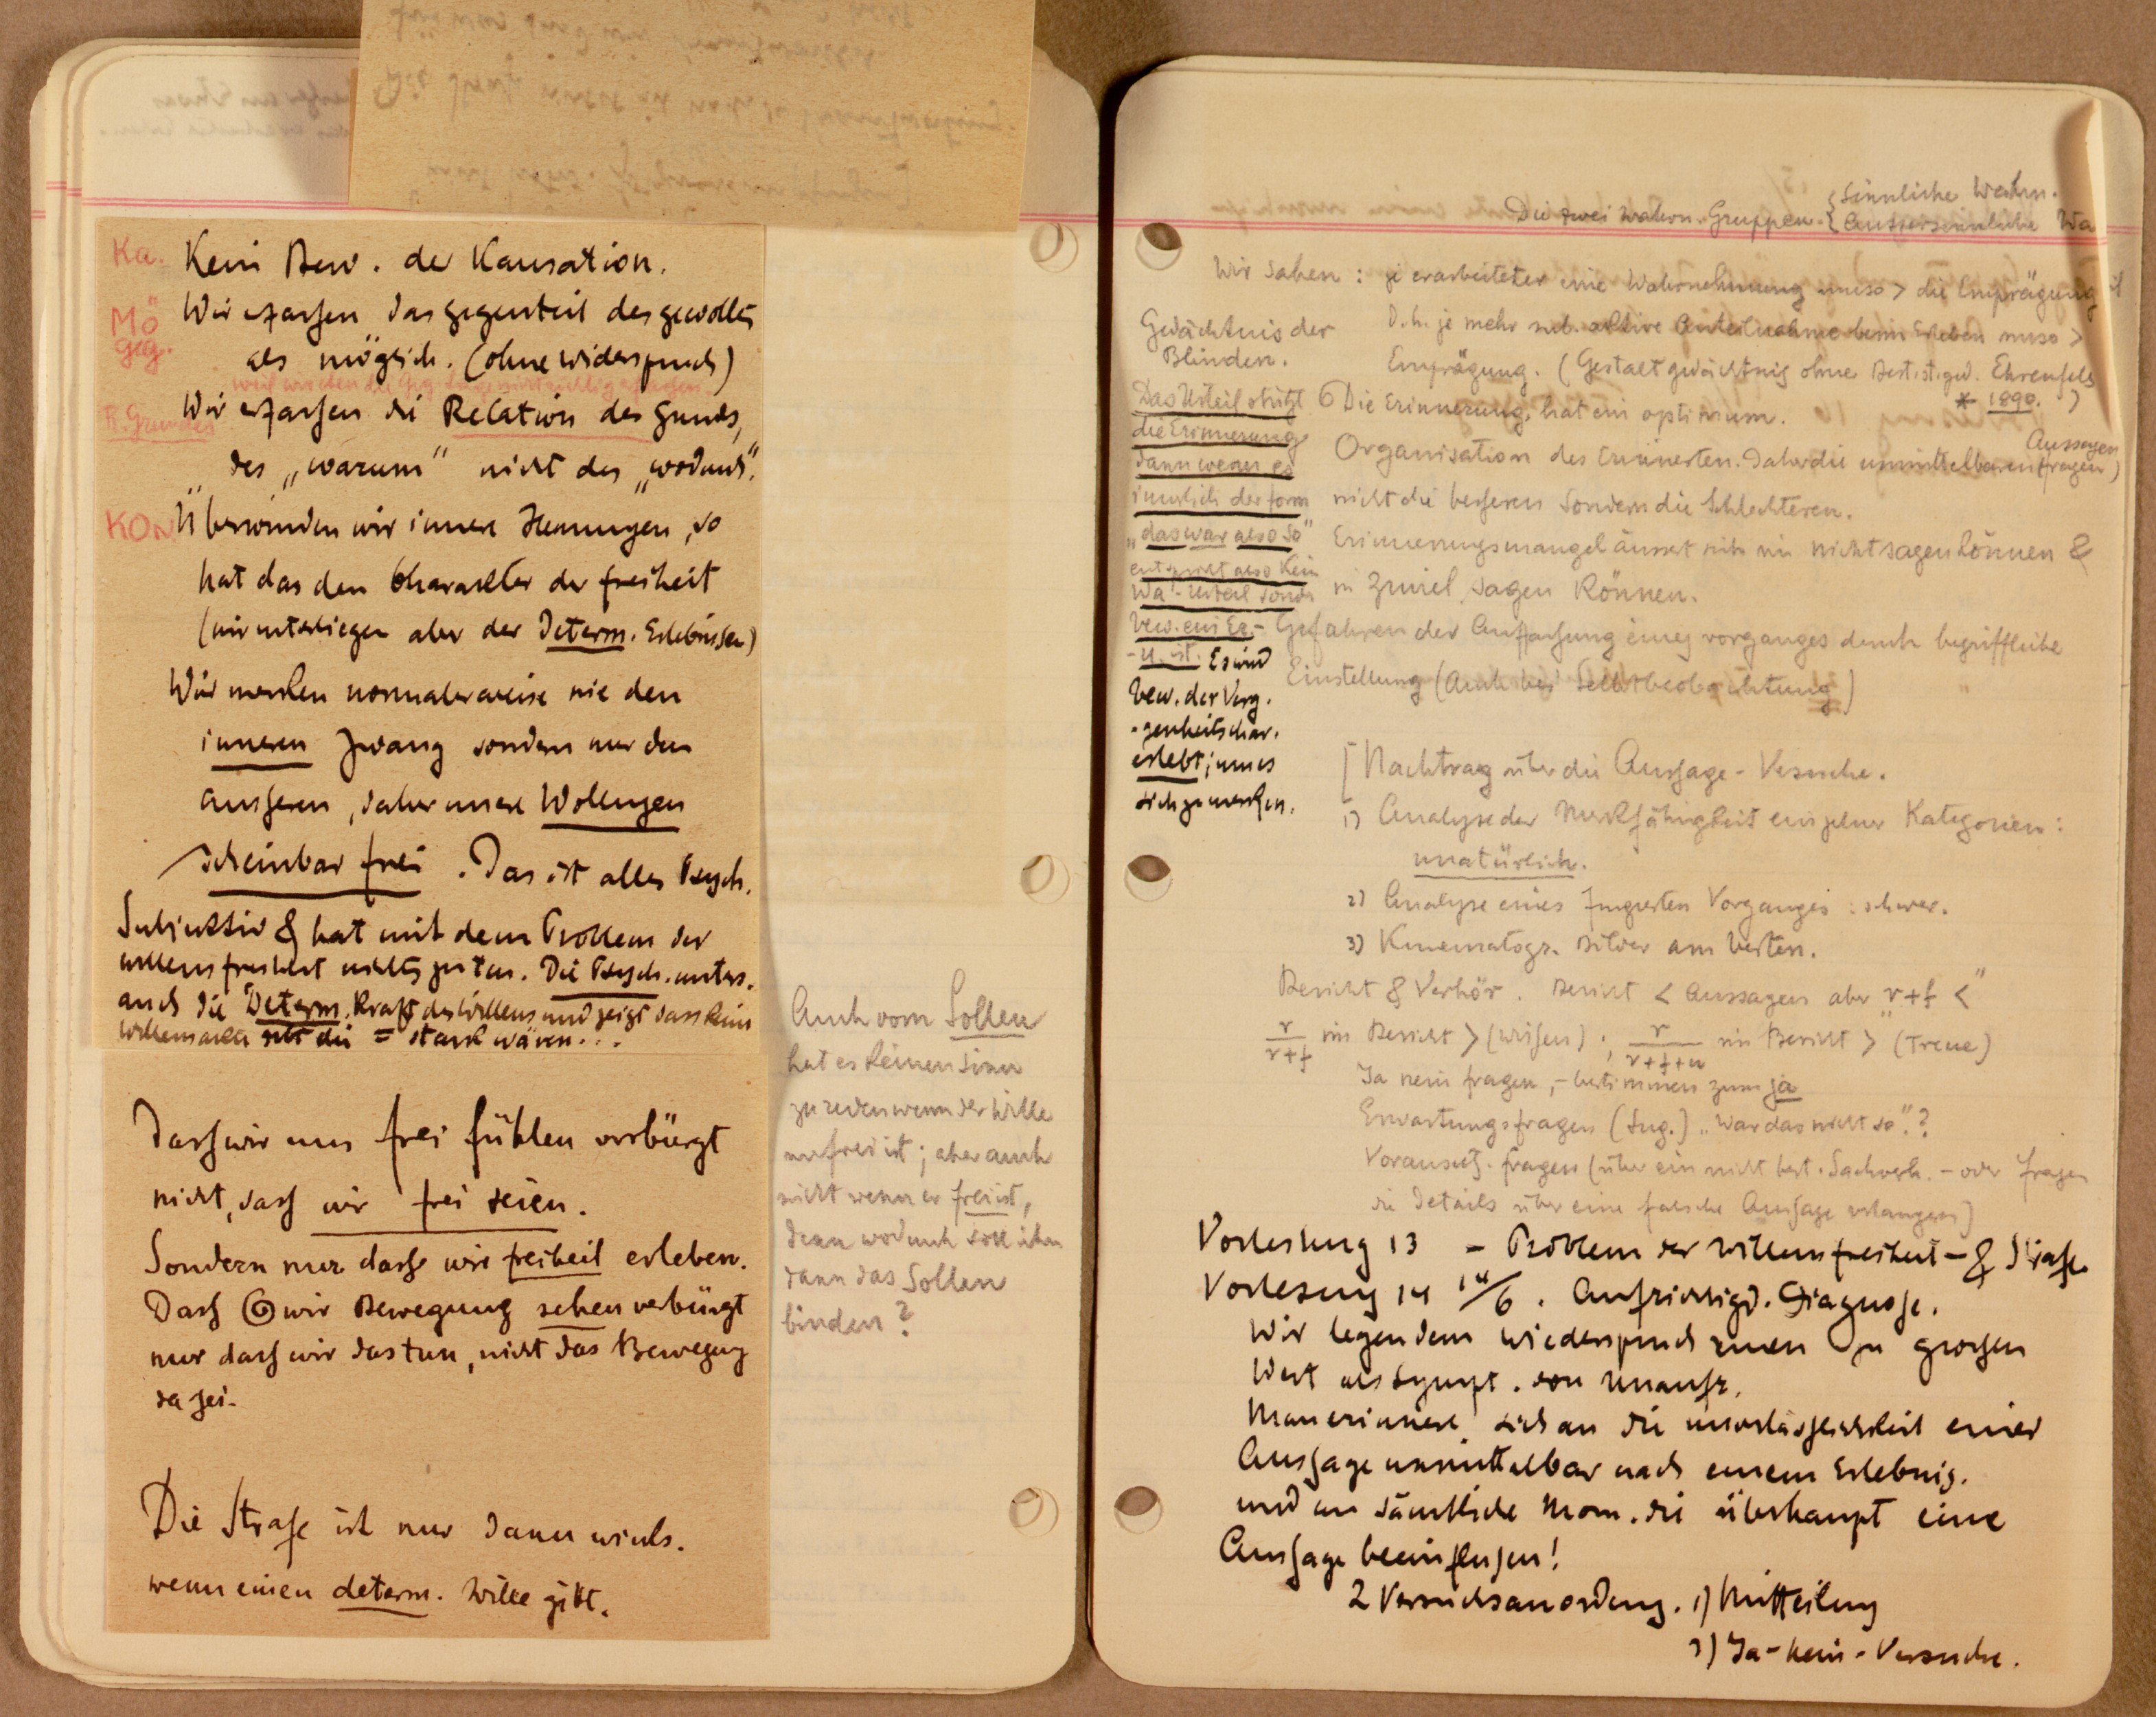 Ka.
Kein Bew. der Kausation.
Mö
Geg.
Wir erfassen das Gegenteil des gewollten
als möglich. (ohne Widerspruch)
R. Grundes
Wir erfassen die Relation des Grunds,
des „warum" nicht des „wodurch".
KON
Überwinden wir innere Hemungen, so
hat das den Charakter der Freiheit
(wir unterliegen aber der Determ. Erlebnissen)
Wir merken normalerweise nie den
inneren Zwang sondern nur den
äusseren, daher unsere Wollungen
scheinbar frei. Das ist alles Psych.
Subjektiv & hat mit dem Problem der
Willensfreiheit nichts zu tun. Die Psych. unters.
auch die Determ. Kraft des Willens und zeigt dass kein
Willensakte gibt die = stark wären...
Dass wir uns frei fühlen verbürgt
nicht, dass wir frei seien.
Sondern nur dass wir Freiheit erleben.
Dass wir Bewegung sehen verbürgt
nur dass wir das tun, nicht das Bewegung
da sei.
Die Strafe ist nur dann wirks.
wenn einen determ. Wille gibt.
Auch vom Sollen
hat es keinen Sinn
zu reden wenn der Wille
unfrei ist; aber auch
nicht wenn er frei ist,
denn wodurch soll ihn
dann das Sollen
binden?
Die zwei Wahrn. Gruppen. { Sinnliche Wahrn.
Aussersinnliche Wa
Wir sahen: je erarbeiteter eine Wahrnehmung umso > die Einprägung
D.h. je mehr sub. aktive Anteilnahme beim Erleben umso >
Einprägung. (Gestaltgedächtnis ohne Ehrenfels
* 1890. )
Gedächtnis der
Blinden.
Das Urteil stützt
die Erinnerung
dann wenn es
innerlich der Form
„das war also so"
entspricht also kein
Wa-Urteil sondern
bew. ein Er-
-u. ist. Es wird
bew. der Verg.
-genheitschar.
erlebt; um es
sich zu merken.
Die Erinnerung, hat ein optimum.
Organisation des Erinnerten. Daher die unmittelbaren Aussagen
(fragen)
nicht die besseren sondern die Schlechteren.
Erinnerungsmangel äussert sich in nicht sagen können &
in zuviel sagen können.
Gefahren der Auffassung eines Vorganges durch begriffliche
Einstellung (Auch bei Selbstbeobachtung)
[Nachtrag über die Aussage-Versuche.
1) Analyse der Merkfähigkeit einzelner Kategorien:
unatürlich.
2) Analyse eines fingierten Vorganges: schwer.
3) Kinematogr. Bilder am besten.
Bericht & Verhör. Bericht < Aussagen aber r+f <
r/r+f im Bericht > (Wissen); r/r+f+u im Bericht > (Treue)
Ja nein fragen, - bestimmen zum ja
Erwartungsfragen (Sug.) „War das nicht so"?
Voraussetz. fragen (über ein nicht best. Sachverh. - oder fragen
die Details über eine falsche Aussage verlangen)
Vorlesung 13 - Problem der Willensfreiheit - & Strafe
Vorlesung 14 14/6. Aufrichtigk. Diagnose.
Wir legen dem Wiederspruch einen zu grossen
Wert als Sympt. von Unaufr.
Man erinnere sich an die unverlässlichkeit einer
Aussage unmittelbar nach einem Erlebnis.
und an sämtliche Mom. die überhaupt eine
Aussage beeinflussen!
2 Versuchsanordnung. 1) Mitteilung
2) Ja-Nein-Versuche.